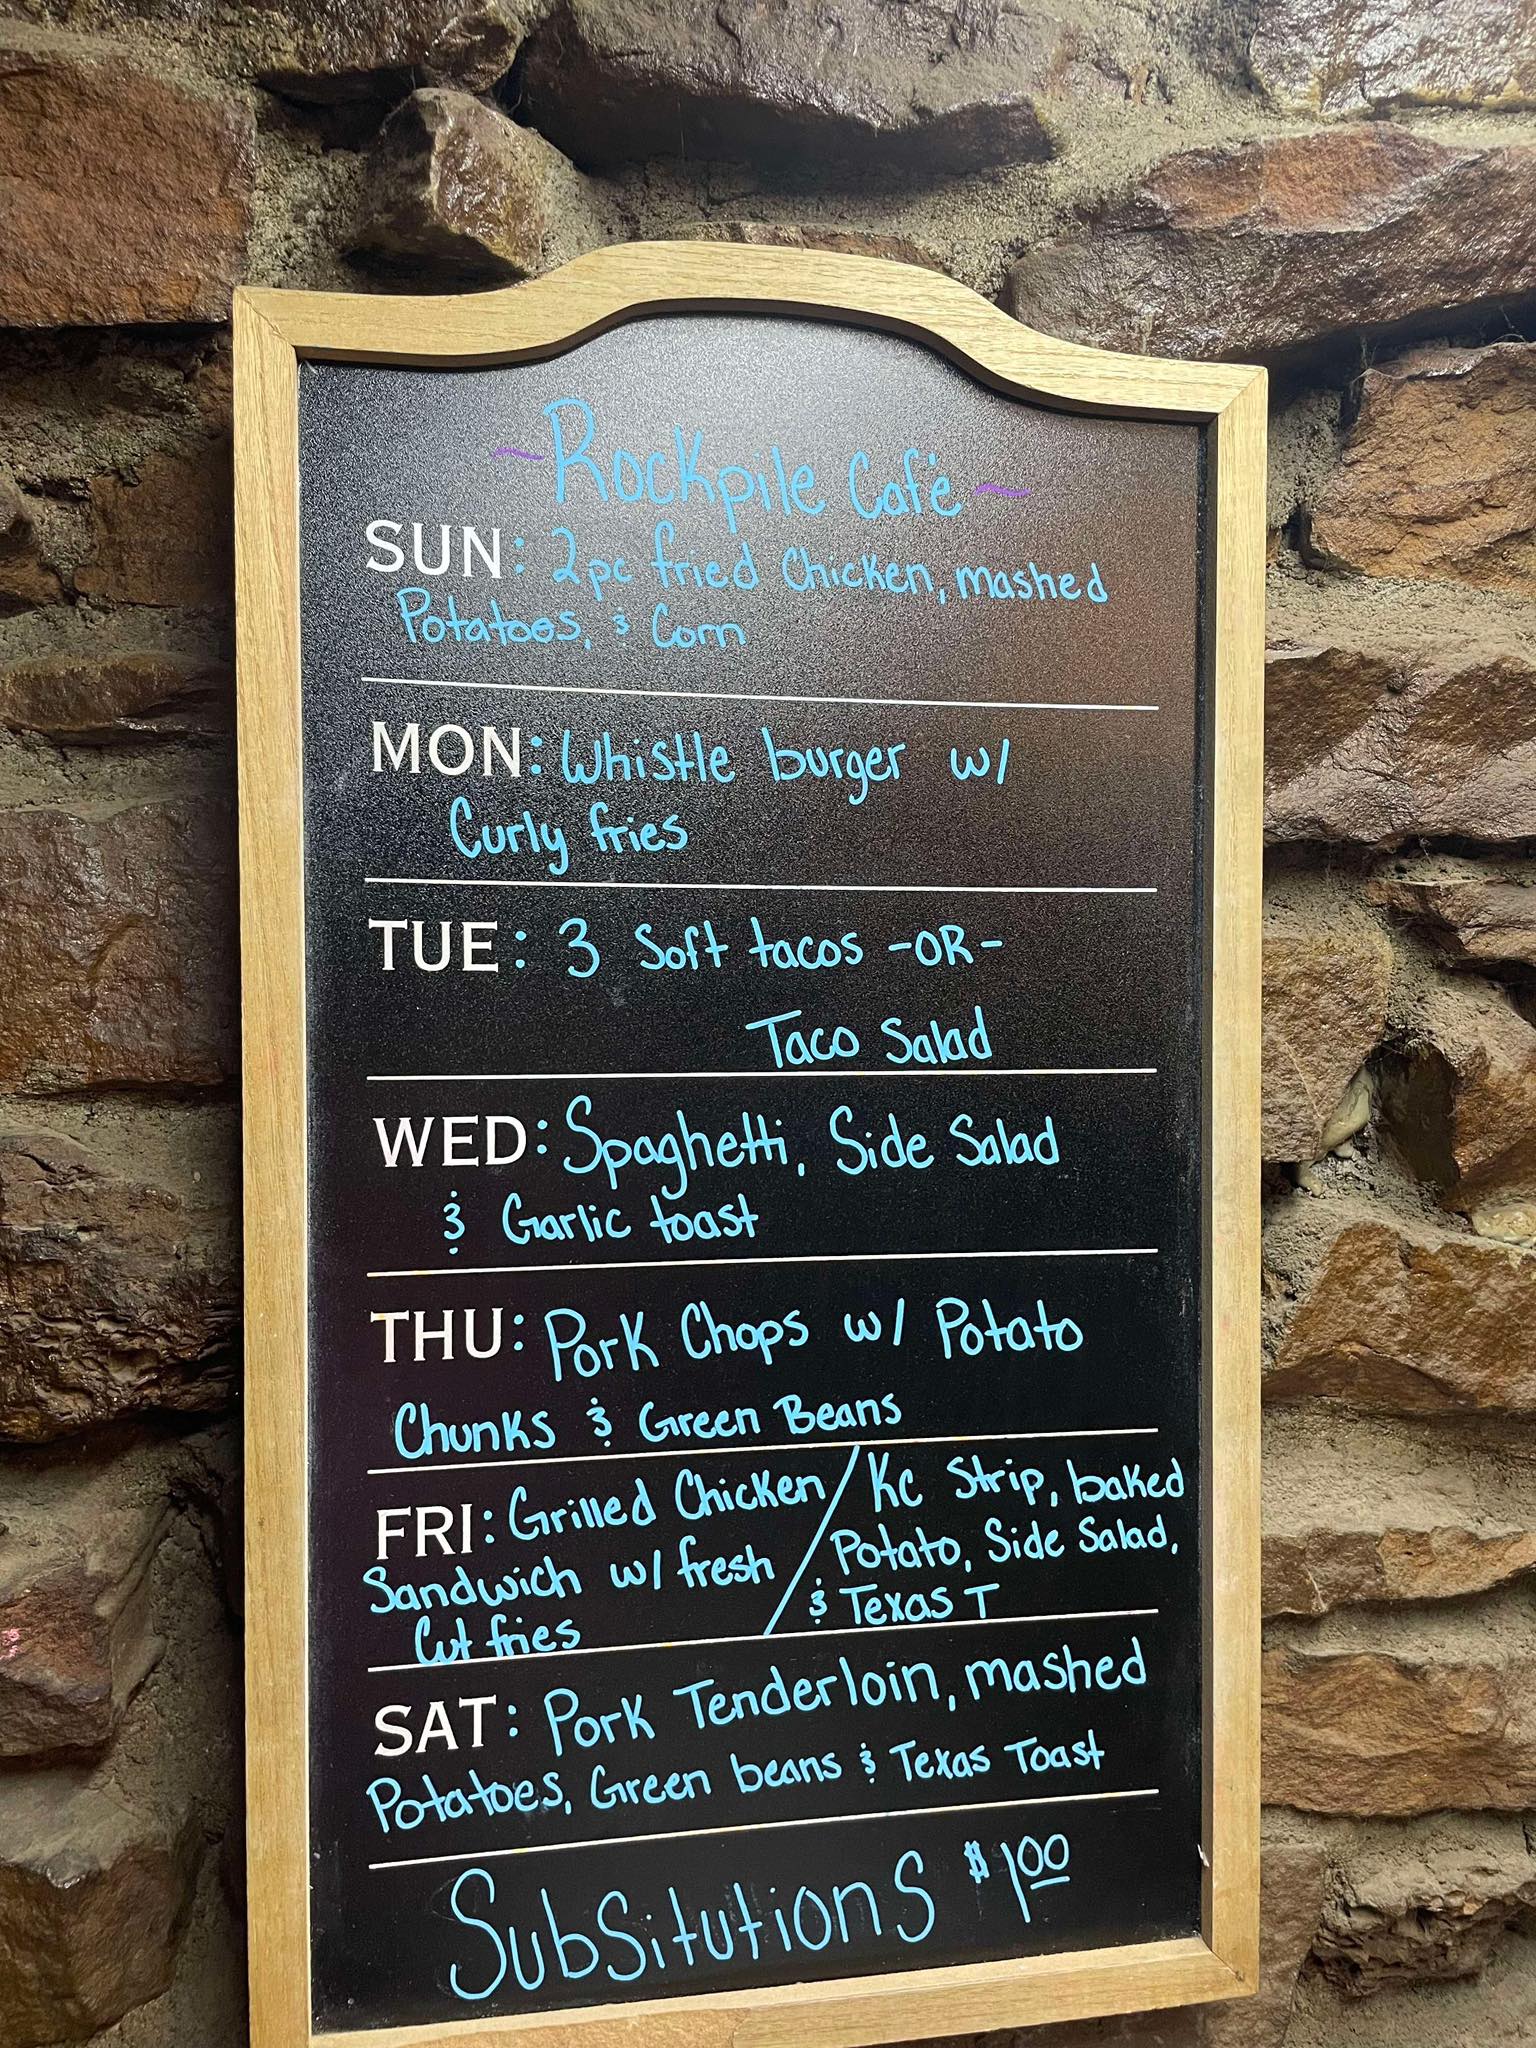 ~Rockpile Cafė~
SUN: 2pc fried Chicken, mashed
Potatoes, & Corn
MON: Whistle burger w/
Curly fries
TUE: 3 Soft tacos -OR-
Taco Salad
WED: Spaghetti, Side Salad
& Garlic toast
THU: Pork Chops w/ Potato
Chunks & Green Beans
FRI: Grilled Chicken / KC Strip, baked
Sandwich w/ fresh / Potato, Side Salad,
Cut fries / & Texas T
SAT: Pork Tenderloin, mashed
Potatoes, Green beans & Texas Toast
Subsitutions $1.00